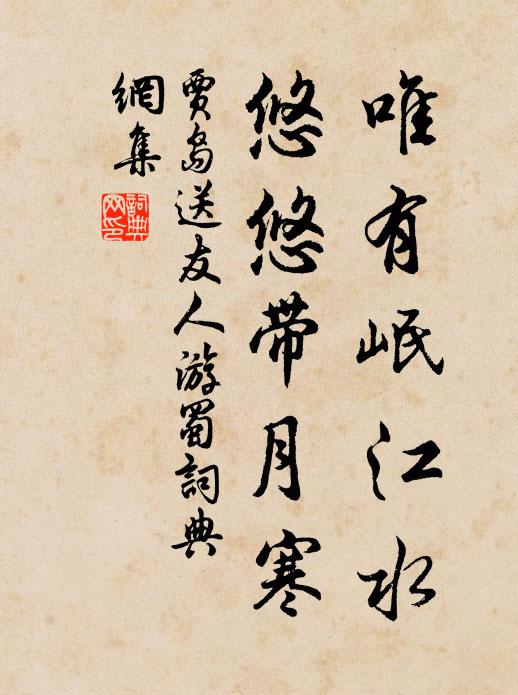 唯有岷江水
悠悠带月寒
賈島送友人游蜀詞典
網集
詞典
网印